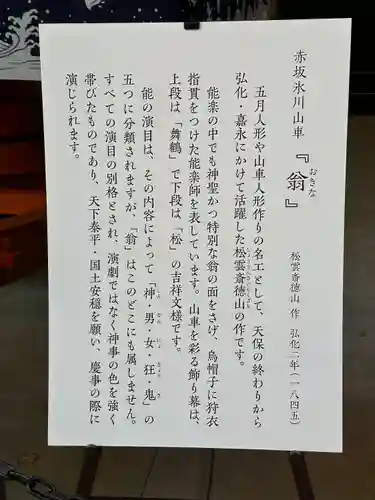 赤坂氷川山車 『翁』
おきな
松雲斎徳山 作 弘化二年(一八四五)
五月人形や山車人形作りの名工として、天保の終わりから
弘化・嘉永にかけて活躍した松雲斎徳山の作です。
しょううんさいとくざん
能楽の中でも神聖かつ特別な翁の面をさげ、烏帽子に狩衣
指貫をつけた能楽師を表しています。山車を彩る飾り幕は、
上段は、「舞鶴」で下段は、「松」の吉祥文様です。
能の演目は、その内容によって「神・男・女・狂・鬼」の
しん なん にょ きょう き
五つに分類されますが、「翁」はこのどこにも属しません。
すべての演目の別格とされ、演劇ではなく神事の色を強く
帯びたものであり、天下泰平・国土安穏を願い、慶事の際に
演じられます。